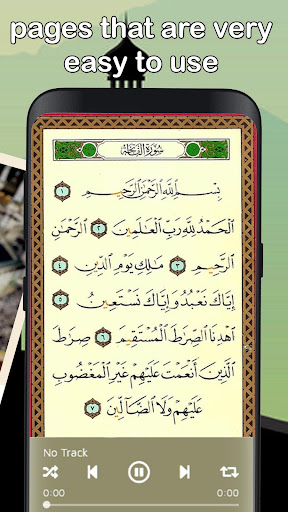 pages that are very
easy to use
سورة الفاتحة
بِسْمِ ٱللَّهِ ٱلرَّحْمَٰنِ ٱلرَّحِيمِ ١
ٱلْحَمْدُ لِلَّهِ رَبِّ ٱلْعَٰلَمِينَ ٢ ٱلرَّحْمَٰنِ
ٱلرَّحِيمِ ٣ مَٰلِكِ يَوْمِ ٱلدِّينِ ٤
إِيَّاكَ نَعْبُدُ وَإِيَّاكَ نَسْتَعِينُ ٥
ٱهْدِنَا ٱلصِّرَٰطَ ٱلْمُسْتَقِيمَ ٦ صِرَٰطَ
ٱلَّذِينَ أَنْعَمْتَ عَلَيْهِمْ غَيْرِ ٱلْمَغْضُوبِ
عَلَيْهِمْ وَلَا ٱلضَّآلِّينَ ٧
No Track
0:00 0:00